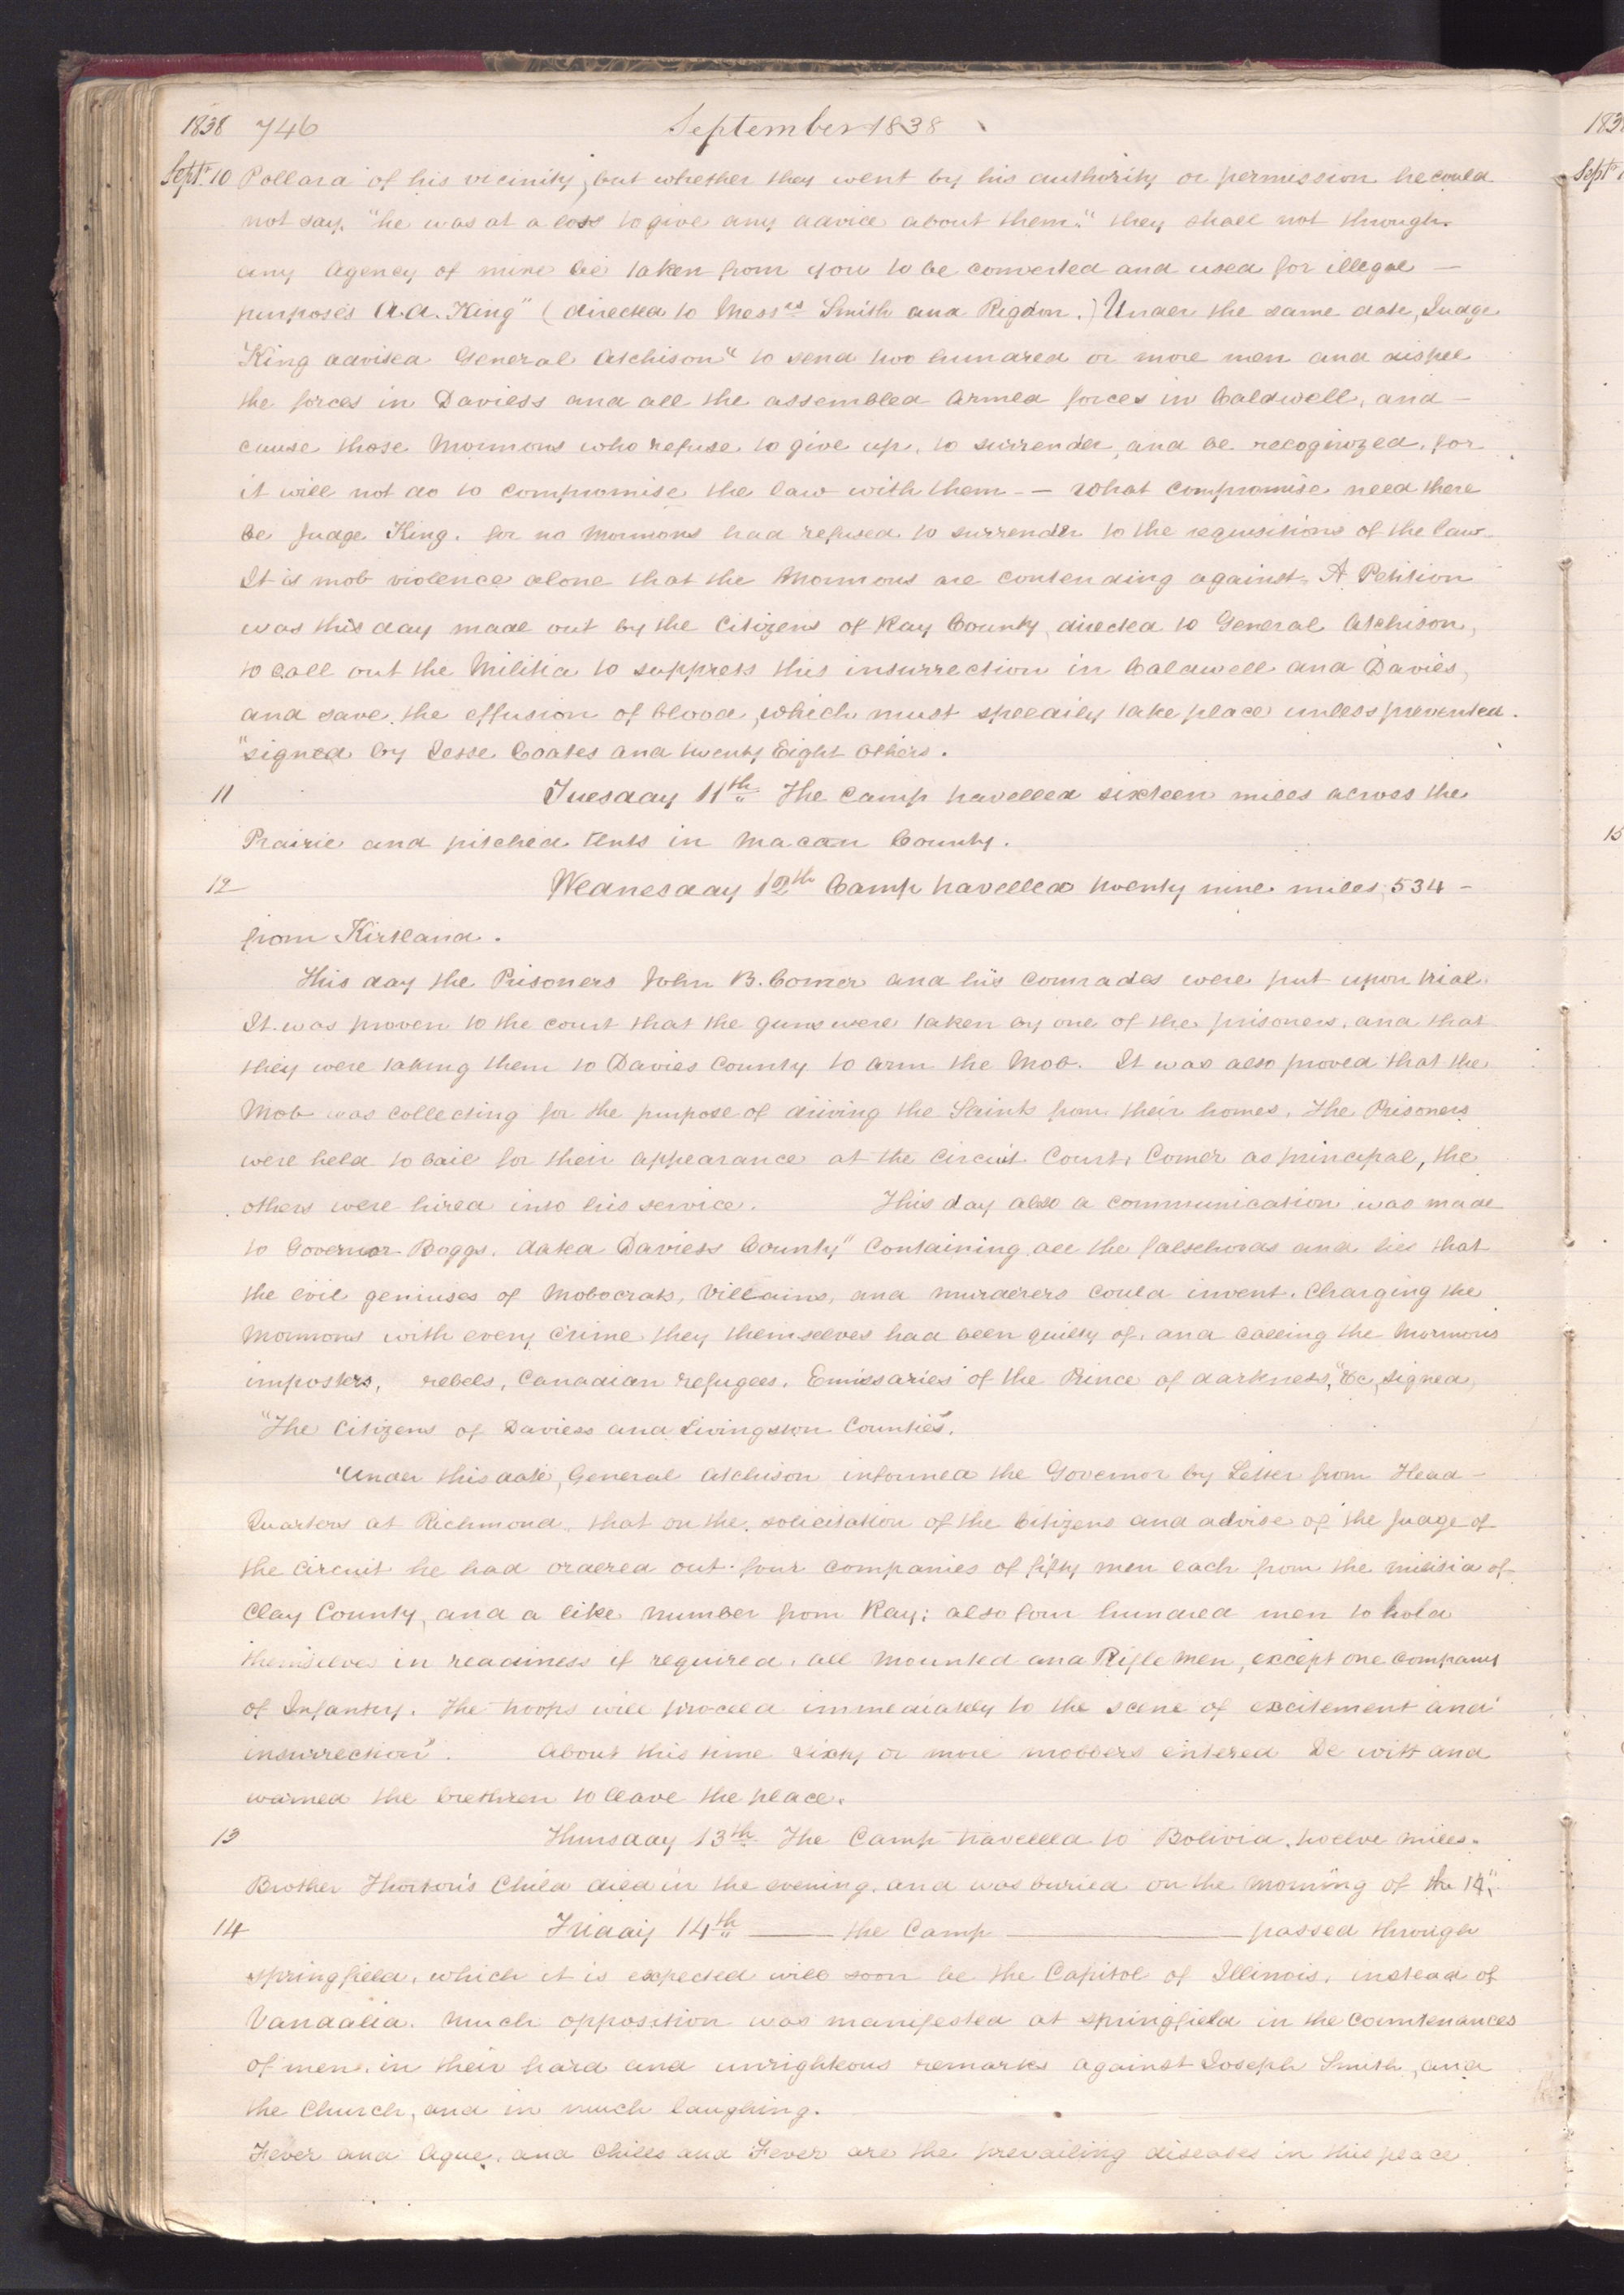 1838 746 September 1838
Septr. 10 Pollard of his vicinity, but whether they went by his authority or permission he could
not say, "he was at a loss to give any advice about them." they shall not through
any Agency of mine be taken from you to be converted and used for illegal —
purposes A.A. King" (directed to Messrs Smith and Rigdon.) Under the same date, Judge
King advised General Atchison "to send two hundred or more men and dispel
the forces in Daviess and all the assembled Armed forces in Caldwell, and —
cause those Mormons who refuse to give up, to surrender, and be recoginzed, for
it will not do to compromise the law with them - — What compromise need there
be Judge King. for no Mormons had refused to surrender to the requisitions of the law
It is mob violence alone that the Mormons are contending against. A Petition
was this day made out by the Citizens of Ray County, directed to General Atchison,
to call out the Militia to suppress this insurrection in Caldwell and Davies,
and save the effusion of blood, which must speedily take place unless prevented.
"signed by Jesse Coates and twenty Eight others.
11 Tuesday 11th The Camp travelled sixteen miles across the
Prairie and pitched tents in Macan County.
12 Wednesday 12th Camp travelled twenty nine miles, 534 —
from Kirtland.
This day the Prisoners John B. Comer and his comrades were put upon trial.
It was proven to the court that the guns were taken by one of the prisoners, and that
they were taking them to Davies County to arm the Mob. It was also proved that the
Mob was collecting for the purpose of driving the Saints from their homes. The Prisoners
were held to bail for their appearance at the Circuit Court, Comer as principal, the
others were hired into his service. This day also a communication was made
to Governor Boggs, dated Daviess County" Containing all the falsehoods and lies that
the evil geniuses of Mobocrats, Villains, and murderers could invent. Charging the
Mormons with every Crime they themselves had been guilty of, and calling the Mormons
imposters, rebels, Canadian refugees, Emissaries of the Prince of darkness," &c, signed,
"The Citizens of Daviess and Livingston Counties."
Under this date, General Atchison informed the Governor by Letter from Head —
Quarters at Richmond, that on the solicitation of the Citizens and advise of the Judge of
the Circuit he had ordered out four companies of fifty men each from the militia of
Clay County, and a like number from Ray; also four hundred men to hold
themselves in readiness if required, all Mounted and Rifle Men, except one Company
of Infantry. The troops will proceed immediately to the scene of excitement and
insurrection". About this time sixty or more mobbers entered De witt and
warned the brethren to leave the place.
13 Thursday 13th The Camp travelled to Bolivia, twelve miles.
Brother Thorton's Child died in the evening, and was buried on the Morning of the 14.
14 Friday 14th — the Camp — passed through
Springfield, which it is expected will soon be the Capitol of Illinois, instead of
Vandalia. Much opposition was manifested at springfield in the countenances
of men, in their hard and unrighteous remarks against Joseph Smith, and
the Church, and in much laughing.
Fever and Ague, and Chills and Fever are the prevailing diseases in this place
183
Sept
15